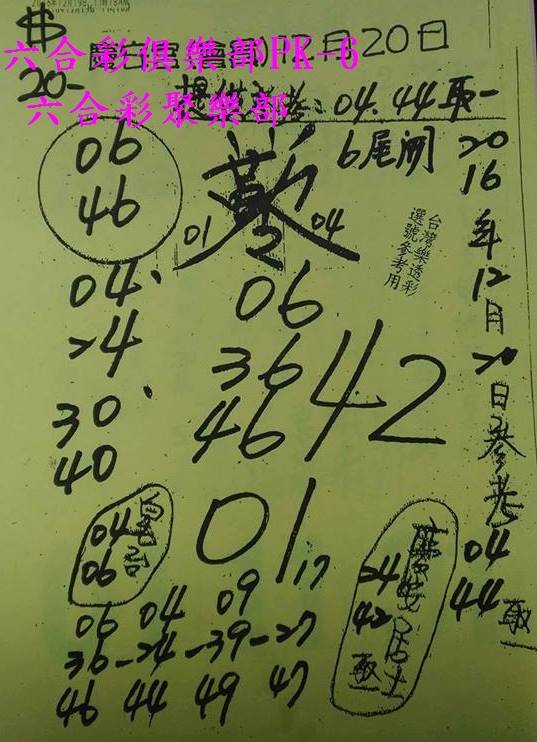 六合彩俱樂部PK-6
12月20日
20-
六合彩聚樂部
04.44取一
06
46
6尾開
01
04
2016年12月20日參考
台灣樂透彩
選號參考用
04、
24
30、
40
06
36
46
42
04
06
01
17
24
42
取一
04
44
取一
06 04 09
36-24-39-27
46 44 49 47